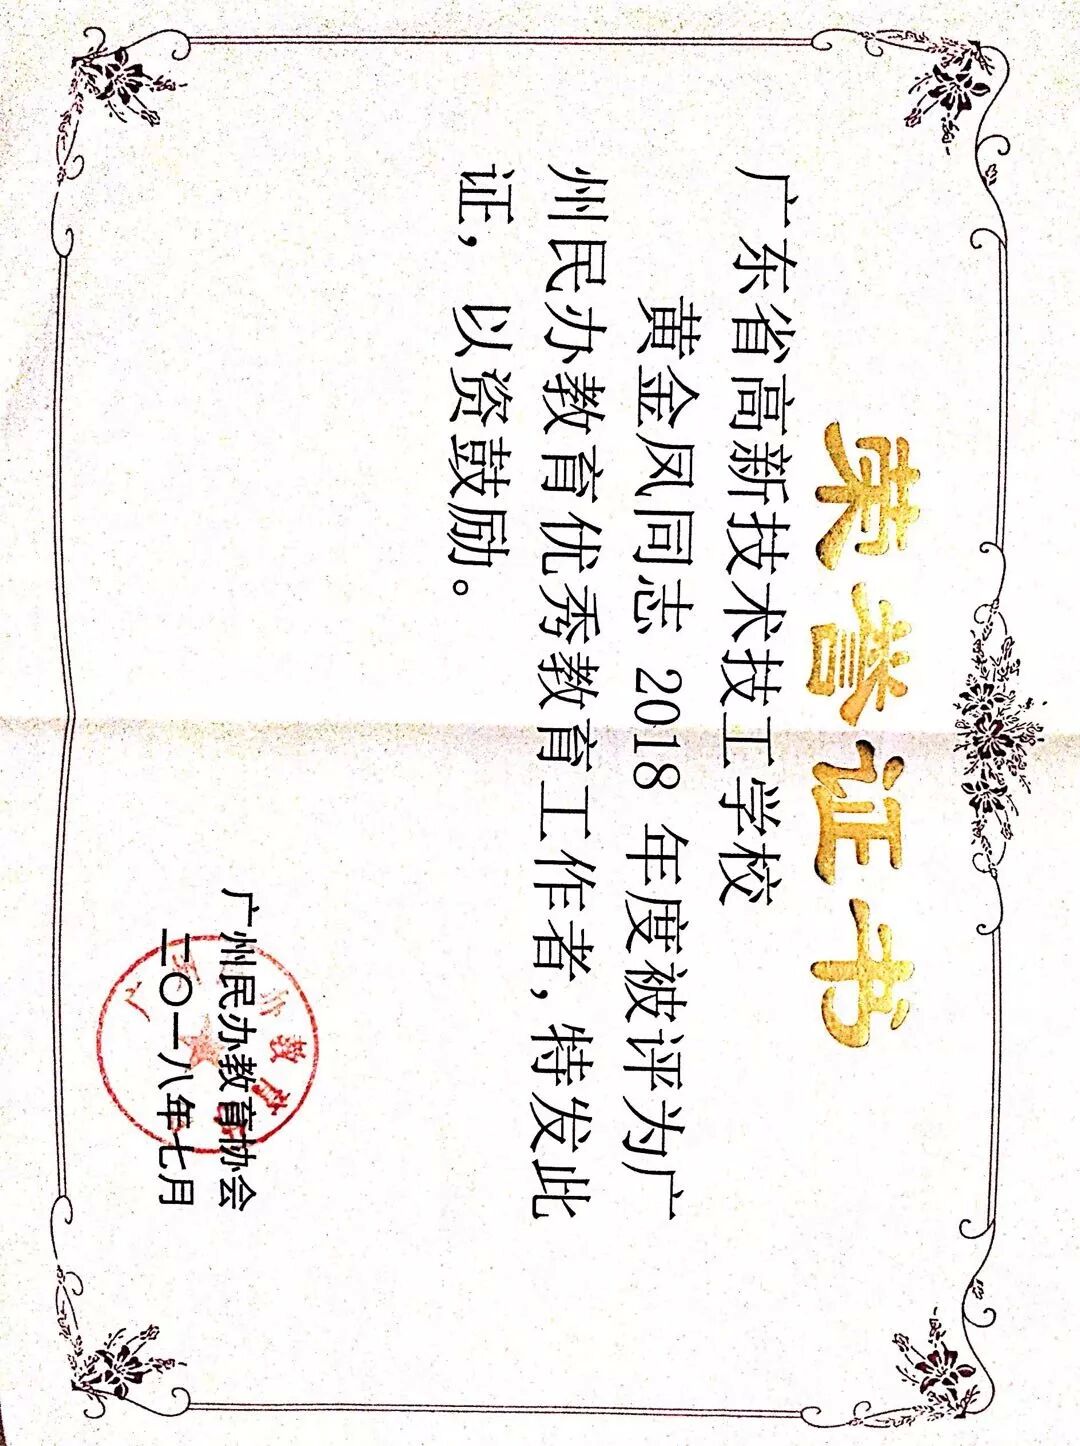 荣誉证书
广东省高新技术技工学校
黄金凤同志 2018 年度被评为广
州民办教育优秀教育工作者，特发此
证，以资鼓励。
广州民办教育协会
二〇一八年七月